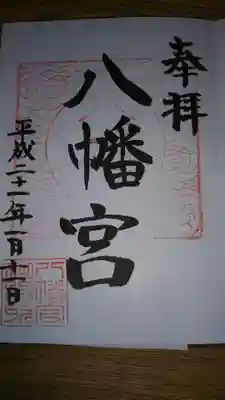 奉拝
八幡宮
平成二十一年一月十一日